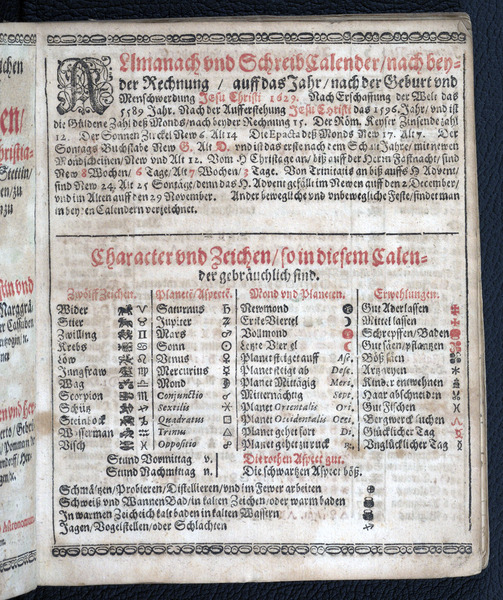 chen
en/
hristia-
Stettin/
en/zu
zu
Almanach vnd Schreib Calender/nach bey-
der Rechnung / auff das Jahr/nach der Geburt vnd
Menschwerdung Jesu Christi 1629. Nach Erschaffung der Welt das
5589 Jahr. Nach der Aufferstehung Jesu Christi das 1596 Jahr/ vnd ist
die Güldene Zahl deß Monds/nach beyder Rechnung 15. Der Röm. Keyser Zinsezahl
12. Der Sonnen Zirckel New 6. Alt 14 Die Epacta deß Monds New 17. Alt 7. Der
Sontags Buchstabe New G. Alt D. vnd ist das erste nach dem Schalt Jahr/ mit newen
Mondscheinen/New vnd Alt 12. Vom H Christtage an/ biß auff der Herrn Faßnacht/ sind
New 8 Wochen/ 6 Tage/ Alt 7 Wochen/ 3 Tage. Von Trinitatis an biß auffs H Advent/
sind New 24. Alt 25 Sontage/ denn das H. Advent gefällt im Newen auff den 2 December/
vnd im Alten auff den 29 November. Ander bewegliche vnd vnbewegliche Feste/ findet man
in beyden Calendern verzeichnet.
Character vnd Zeichen/ so in diesem Calen-
der gebräuchlich sind.
Zwölff Zeichen. Planetē/Aspectē. Mond vnd Planeten. Erwehlungen.
Wider ♈ Saturnus ♄ Newmond Gut Aderlassen
Stier ♉ Jupiter ♃ Erste Viertel Mittel lassen
Zwilling ♊ Mars ♂ Vollmond Schrepffen/Baden
Krebs ♋ Sonn ☉ Letzte Viertel Gut säen/pflantzen
Löw ♌ Venus ♀ Planet steiget auff Asc. Böß säen
Jungfraw ♍ Mercurius ☿ Planet steigt ab Desc. Artzneyen
Wag ♎ Mond ☽ Planet Mittägig Meri. Kinder entwehnen
Scorpion ♏ Conjunctio ☌ Mitternächtig Sept. Haar abschneiden
Schütz ♐ Sextilis ⚹ Planet Orientalis Ori. Gut Fischen
Steinbock ♑ Quadratus □ Planet Occidentalis Occ. Bergwerck suchen
Wasserman ♒ Trinus △ Planet gehet fort Di. Glücklicher Tag
Visch ♓ Oppositio ☍ Planet gehet zu ruck Unglücklicher Tag
Stund Vormittag v. Die rothen Aspect gut.
Stund Nachmittag n. Die schwartzen Aspect böß.
Schmältzen/Probieren/Distellieren/ vnd im Fewer arbeiten
Schweiß vnd Wannen Bad/ in kalten Zeichen/ oder warm baden
In warmen Zeichē ich kalt baden in kalten Wassern
Jagen/ Vogelstellen/ oder Schlachten